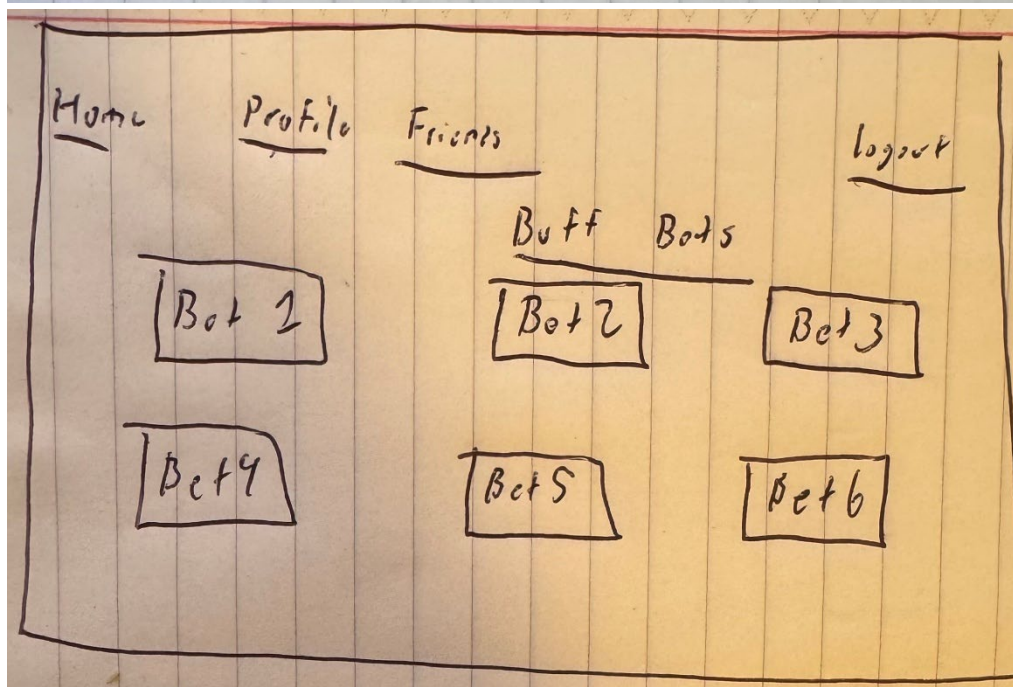 Home Profile Friends logout
Buff Bets
Bet 1 Bet 2 Bet3
Bet4 Bet5 Bet6